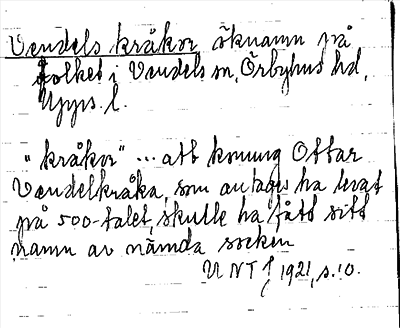 Vendels kråkor öknamn på
folket i Vendels sn, Örbyhus hd,
Upps. l.
"kråkor" ... att konung Ottar
Vendelkråka, som antages ha levat
på 500-talet, skulle ha fått sitt
namn av nämda socken
UNT 1921, s. 10.